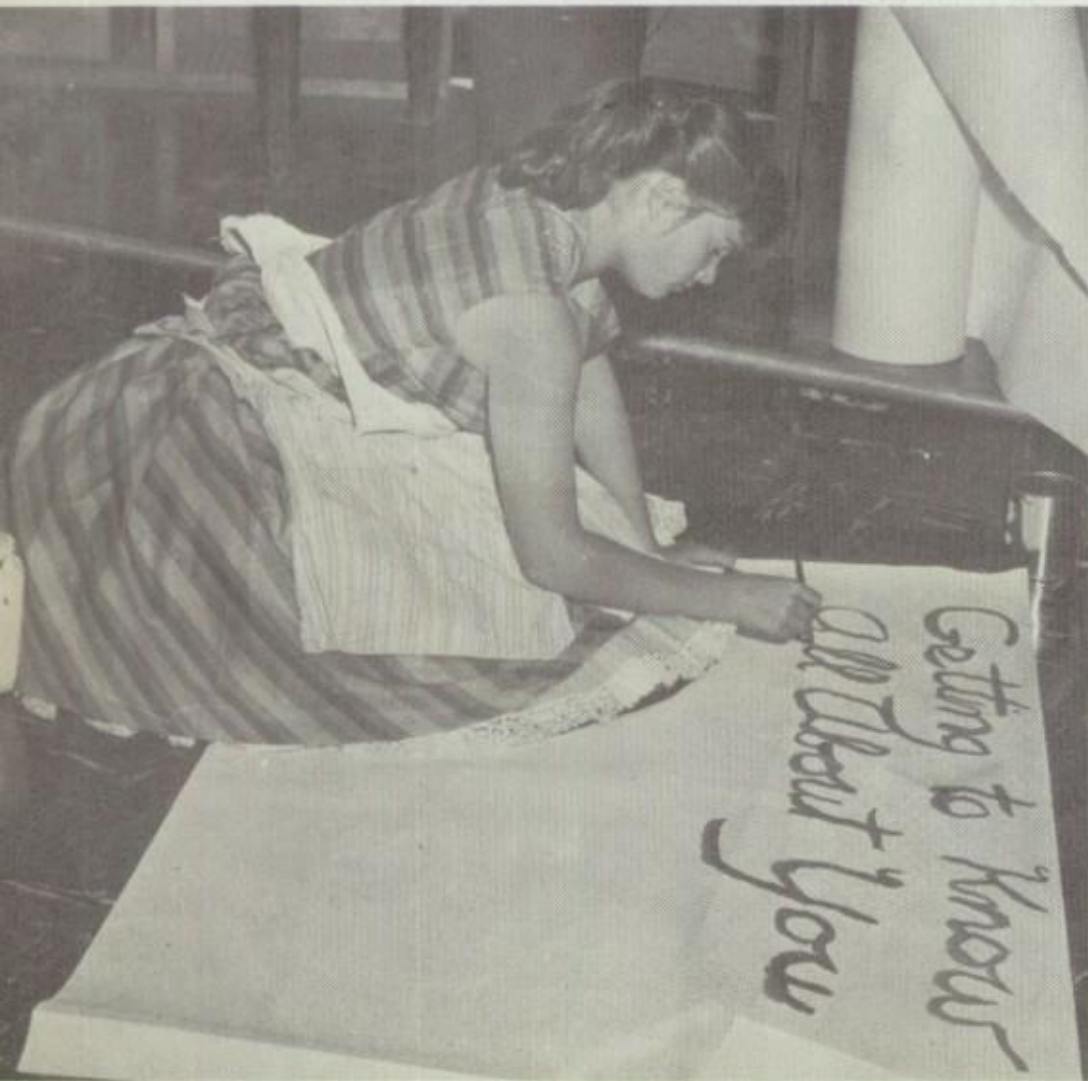 Getting to Know
all About You